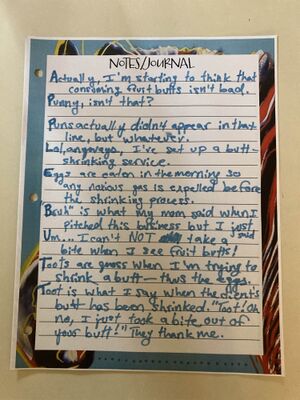 NOTES/JOURNAL
Actually, I'm starting to think that
consoming fruit butts isn't bad.
Punny, isn't that?
Puns actually didn't appear in that
line, but whatever.
Lol, anyways, I've set up a butt-
shrinking service.
Eggs are eaten in the morning so
any noxious gas is expelled before
the shrinking process.
"Bruh" is what my mom said when I
pitched this business but I just said
Um... I can't NOT take a
bite when I see fruit butts!
Toots are gross when I'm trying to
shrink a butt — thus the eggs.
Toot is what I say when the client's
butt has been shrinked. "Toot! Oh
no, I just took a bite out of
your butt!" They thank me.